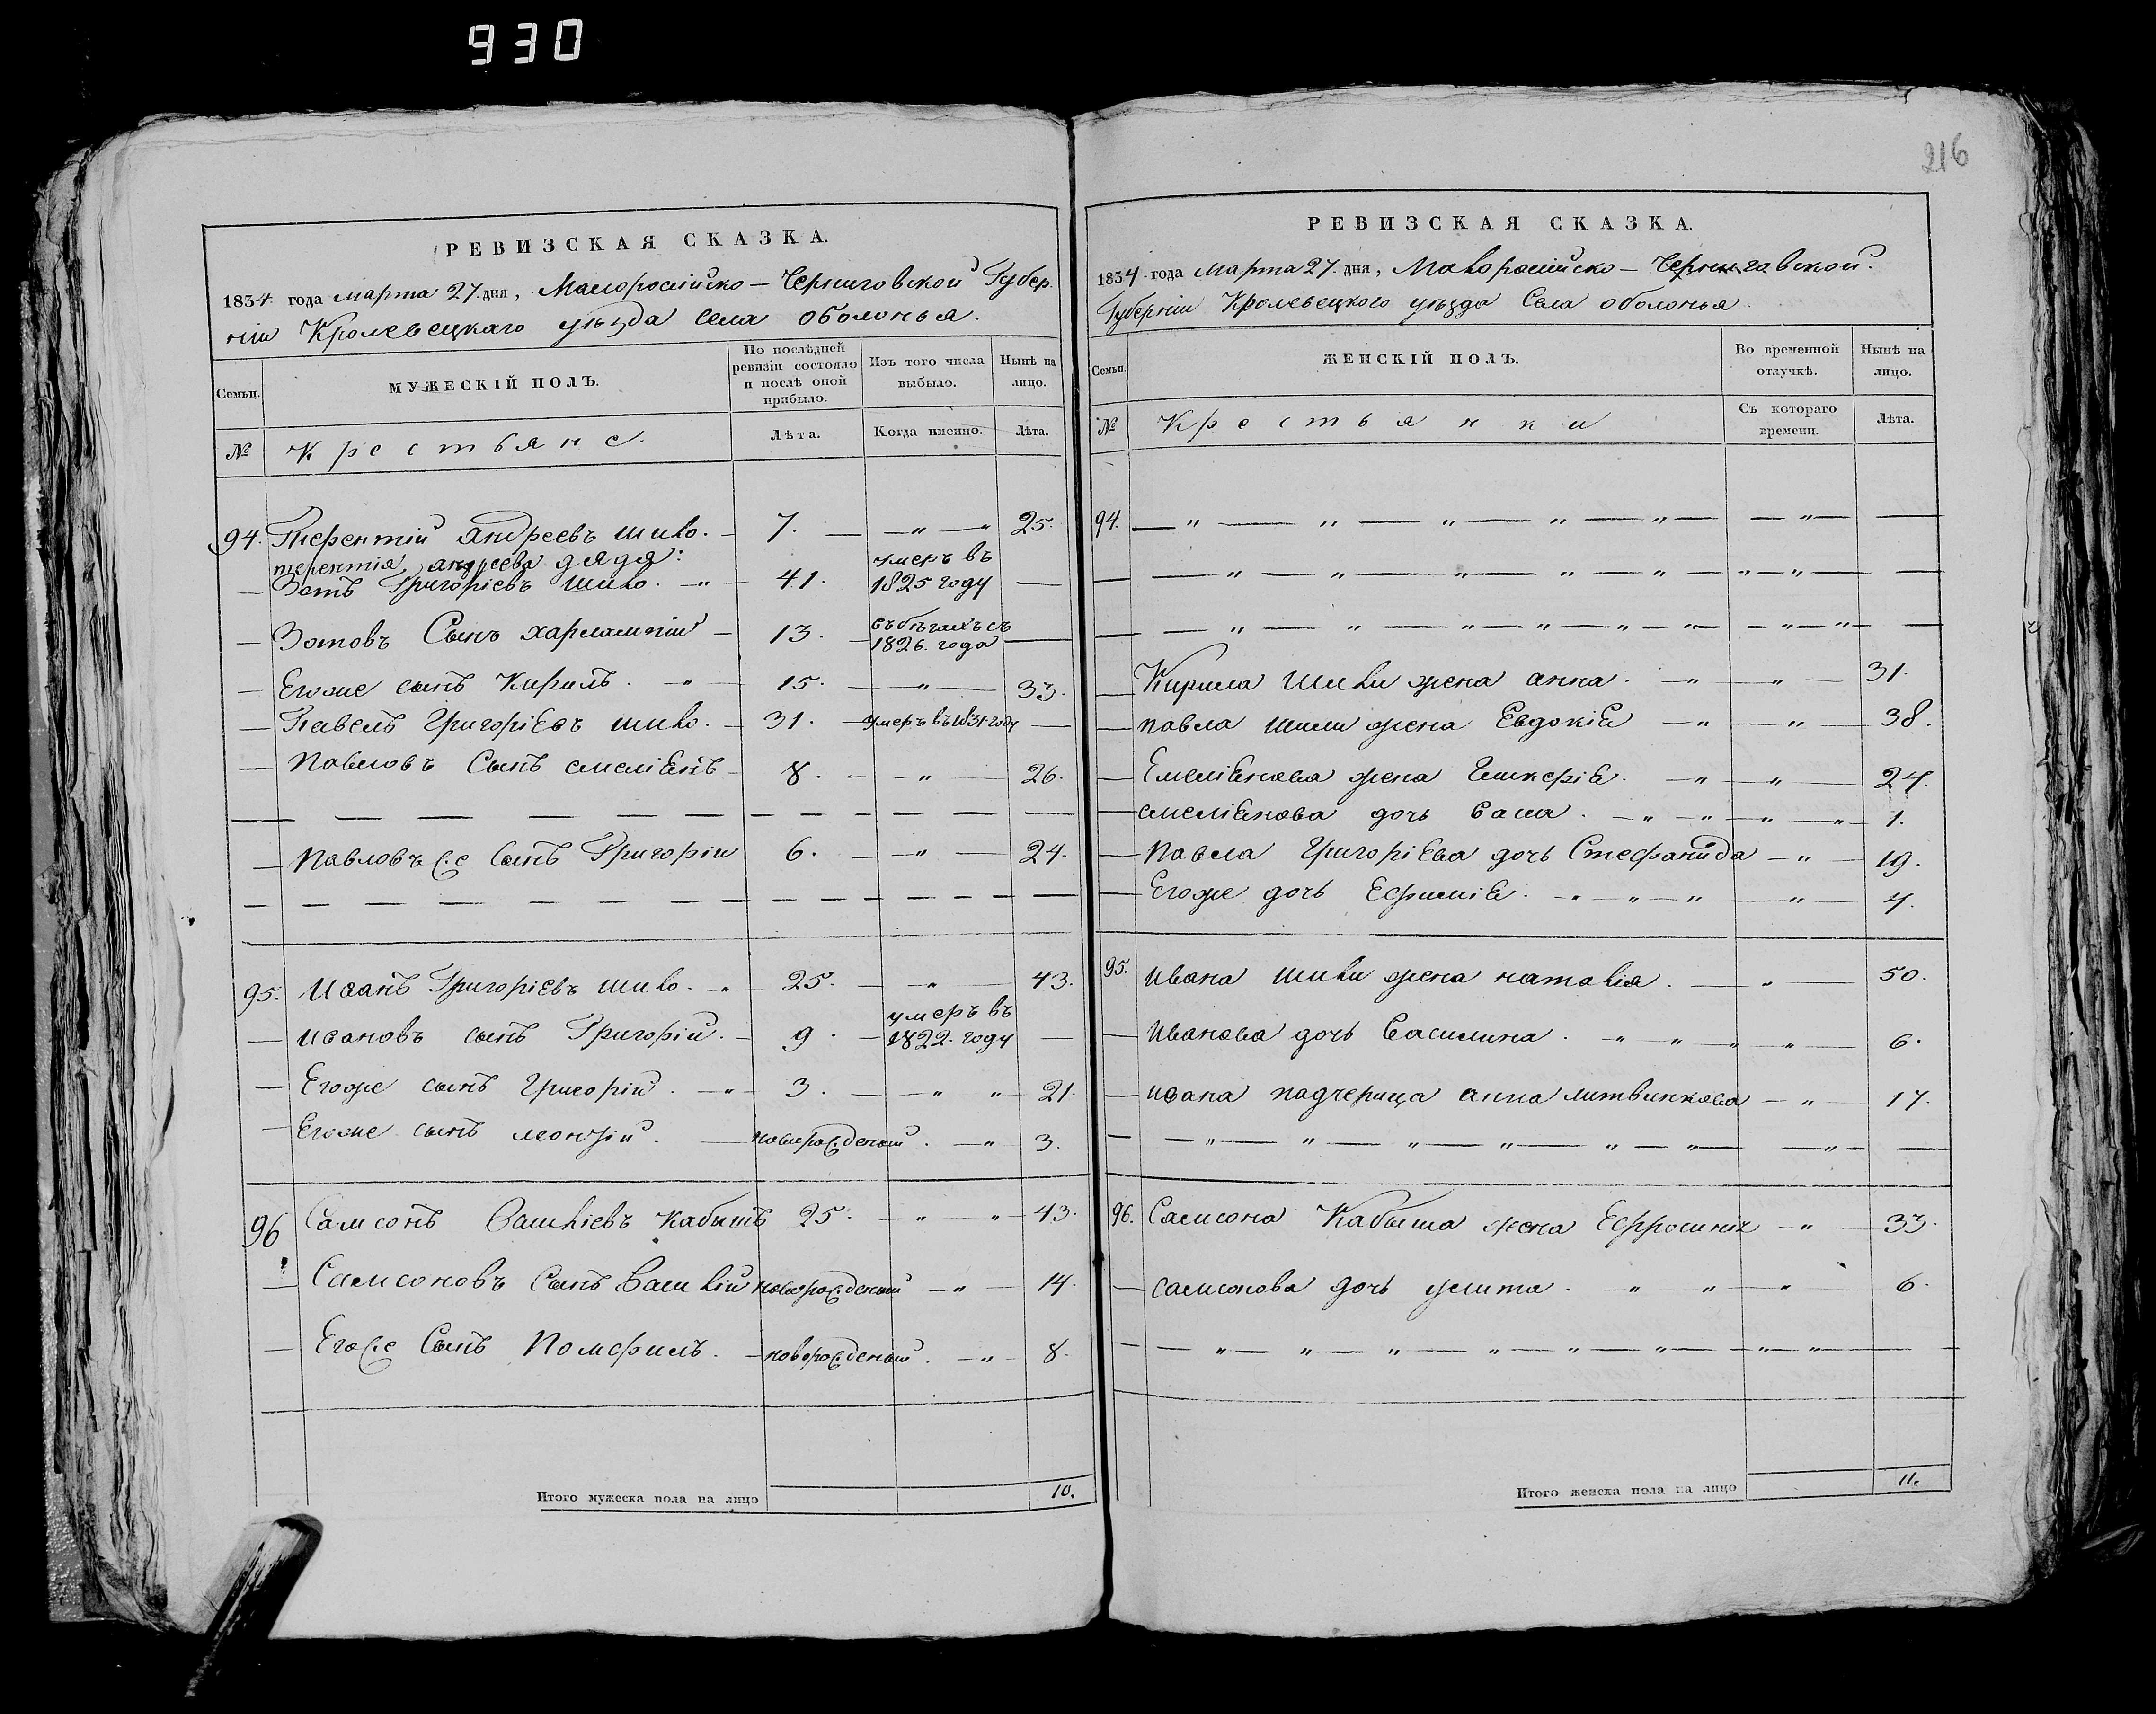 930
216
РЕВИЗСКАЯ СКАЗКА.
1834 года марта 27 дня, Малоросійско — Черниговской Губер
ніи Кролевецкаго уѣзда села оболонья.
Семьи. МУЖЕСКІЙ ПОЛЪ. По послѣдней ревизіи состояло и послѣ оной прибыло. Изъ того числа выбыло. Нынѣ на лицо.
№ Крестьяне. Лѣта. Когда именно. Лѣта.
94. Терентій андреевъ шило. 7. — " — " 25.
терентія андреева дядя:
Зотъ Григоріевъ шило. — " 41. умеръ въ 1825 году —
— Зотовъ Сынъ харлампій — 13. въ бѣгахъ съ 1826. года —
— Егоже сынъ Кирилъ. " 15. — " — 33.
— Павелъ Григоріевъ шило. — 31. умеръ въ 1831 году —
— Павловъ Сынъ емеліянъ — 8. — " — 26.
— Павловъ же Сынъ Григорій 6. — " — 24.
95. Иванъ Григоріевъ шило. — " 25. — " — 43.
— ивановъ сынъ Григорій. — 9. умеръ въ 1822. году —
— Егоже сынъ Григорій. — " 3. — " " 21.
— Егоже сынъ леонтій. новорожденый. — " 3.
96 Самсонъ Василіевъ Кабышъ 25. — " " 43.
— Самсоновъ Сынъ Василій новорожденый — " — 14.
— Егоже Сынъ Помфилъ. — новорожденый. — " 8.
Итого мужеска пола на лицо 10.
РЕВИЗСКАЯ СКАЗКА.
1834 года марта 27 дня, Малоросійско — Черниговской.
Губерніи Кролевецкого уѣзда Села оболонья
Семьи. ЖЕНСКІЙ ПОЛЪ. Во временной отлучкѣ. Нынѣ на лицо.
№ Крестьянки Съ котораго времени. Лѣта.
94. — " — " — " — " — " — " —
— — " — " — " — " — " — " — " —
— — " — " — " — " — " — " — " — " —
— Кирила Шили жена анна. — " — " — 31.
— павла шили жена Евдокія — " — " — 38.
— Емеліянова жена Гликерія. — " — " — 24.
— емеліянова дочь Васа. — " — " — " — " — 1.
— Павла Григоріева дочь Стефанида — " — 19.
— Егоже дочь Ефимія. — " — " — " — " — 4.
95. Ивана шили жена наталія. — " — 50.
— Иванова дочь Василина. — " " — " " — 6.
— ивана падчерица анна литвинкова — " — 17.
— — " — " — " — " — " — " — " —
96. Самсона Кабыша жена Ефросинія — " — 33.
— самсонова дочь улита. — " " — " — 6.
— — " — " — " — " — " — " — " — " —
Итого женска пола на лицо 11.